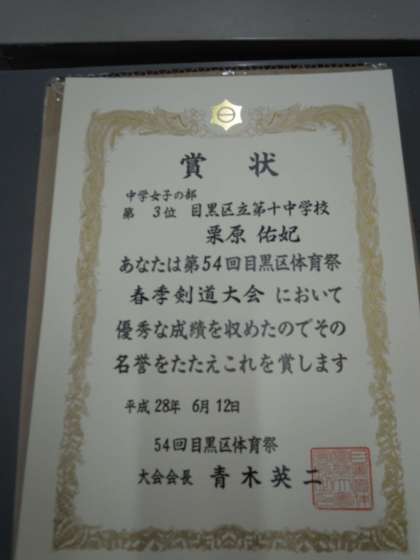 賞状
中学女子の部
第 3位 目黒区立第十中学校
栗原 佑妃
あなたは第54回目黒区体育祭
春季剣道大会 において
優秀な成績を収めたのでその
名誉をたたえこれを賞します
平成 28年 6月 12日
54回目黒区体育祭
大会会長 青木英二